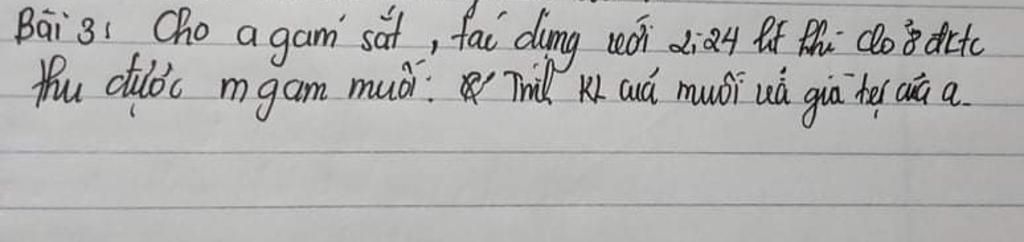 Bài 3: Cho a gam sắt, tác dụng với 2,24 lít khí clo ở đktc
thu được m gam muối. Tính KL của muối và giá trị của a.